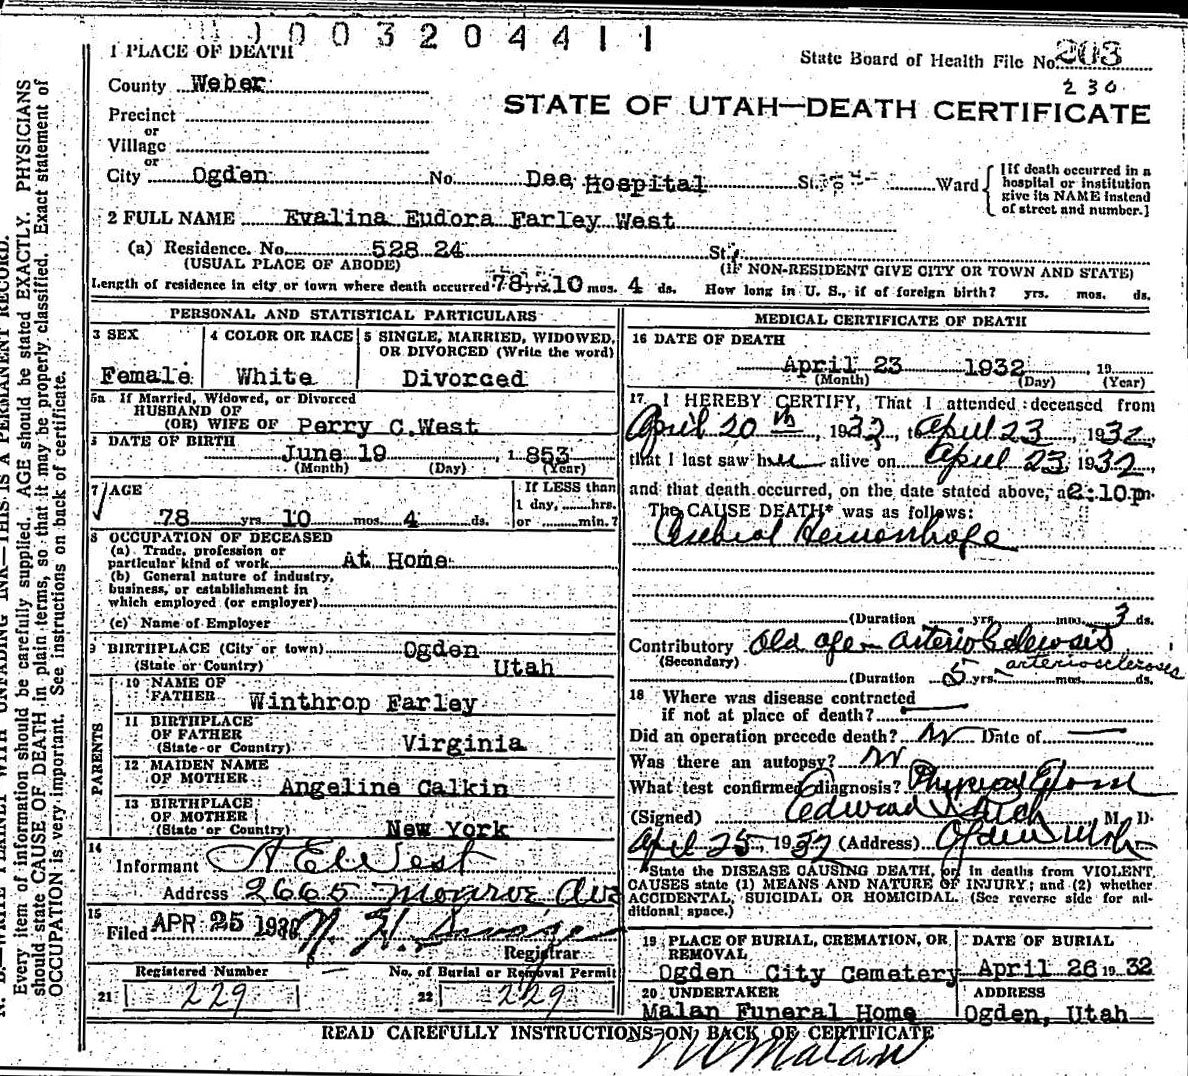 0003204411
1 PLACE OF DEATH
State Board of Health File No. 203
230
County Weber
STATE OF UTAH—DEATH CERTIFICATE
Precinct
or
Village
or
City Ogden No. Dee Hospital St. Ward
[If death occurred in a hospital or institution give its NAME instead of street and number.]
2 FULL NAME Evalina Eudora Farley West
(a) Residence. No. 528 24 St.
(USUAL PLACE OF ABODE) (IF NON-RESIDENT GIVE CITY OR TOWN AND STATE)
Length of residence in city or town where death occurred 78 yrs. 10 mos. 4 ds. How long in U. S., if of foreign birth? yrs. mos. ds.
PERSONAL AND STATISTICAL PARTICULARS
3 SEX
Female
4 COLOR OR RACE
White
5 SINGLE, MARRIED, WIDOWED,
OR DIVORCED (Write the word)
Divorced
5a If Married, Widowed, or Divorced
HUSBAND OF
(OR) WIFE OF Perry C. West
DATE OF BIRTH
June 19 1853
(Month) (Day) (Year)
7 AGE
78 yrs. 10 mos. 4 ds.
If LESS than
1 day, hrs.
or min.?
8 OCCUPATION OF DECEASED
(a) Trade, profession or
particular kind of work At Home
(b) General nature of industry,
business, or establishment in
which employed (or employer)
(c) Name of Employer
9 BIRTHPLACE (City or town) Ogden
(State or Country) Utah
PARENTS
10 NAME OF
FATHER Winthrop Farley
11 BIRTHPLACE
OF FATHER
(State or Country) Virginia
12 MAIDEN NAME
OF MOTHER Angeline Calkin
13 BIRTHPLACE
OF MOTHER
(State or Country) New York
14
Informant A E West
Address 2665 Monroe Ave
15
Filed APR 25 1932 N. H. Savage
Registrar
Registered Number
21 229
No. of Burial or Removal Permit
22 229
MEDICAL CERTIFICATE OF DEATH
16 DATE OF DEATH
April 23 1932, 19
(Month) (Day) (Year)
17 I HEREBY CERTIFY, That I attended deceased from
April 20th, 1932, to April 23, 1932,
that I last saw her alive on April 23 1932,
and that death occurred, on the date stated above, a 2:10 p.
The CAUSE DEATH* was as follows:
Cerebral Hemorrhage
(Duration yrs. mos. 3 ds.
Contributory Old age — arterio
(Secondary) arteriosclerosis
(Duration 5 yrs. mos. ds.
18 Where was disease contracted
if not at place of death?
Did an operation precede death? no Date of
Was there an autopsy? no
What test confirmed diagnosis? Physical
(Signed) Edward M. D.
April 25, 1932 (Address) Ogden Utah
*State the DISEASE CAUSING DEATH, or in deaths from VIOLENT
CAUSES state (1) MEANS AND NATURE OF INJURY; and (2) whether
ACCIDENTAL, SUICIDAL OR HOMICIDAL. (See reverse side for ad-
ditional space.)
19 PLACE OF BURIAL, CREMATION, OR
REMOVAL
Ogden City Cemetery
DATE OF BURIAL
April 26 19 32
20 UNDERTAKER
Malan Funeral Home
ADDRESS
Ogden, Utah
READ CAREFULLY INSTRUCTIONS ON BACK OF CERTIFICATE
Malan
N. B.—WRITE PLAINLY WITH UNFADING INK—THIS IS A PERMANENT RECORD.
Every item of information should be carefully supplied. AGE should be stated EXACTLY. PHYSICIANS
should state CAUSE OF DEATH in plain terms, so that it may be properly classified. Exact statement of
OCCUPATION is very important. See instructions on back of certificate.